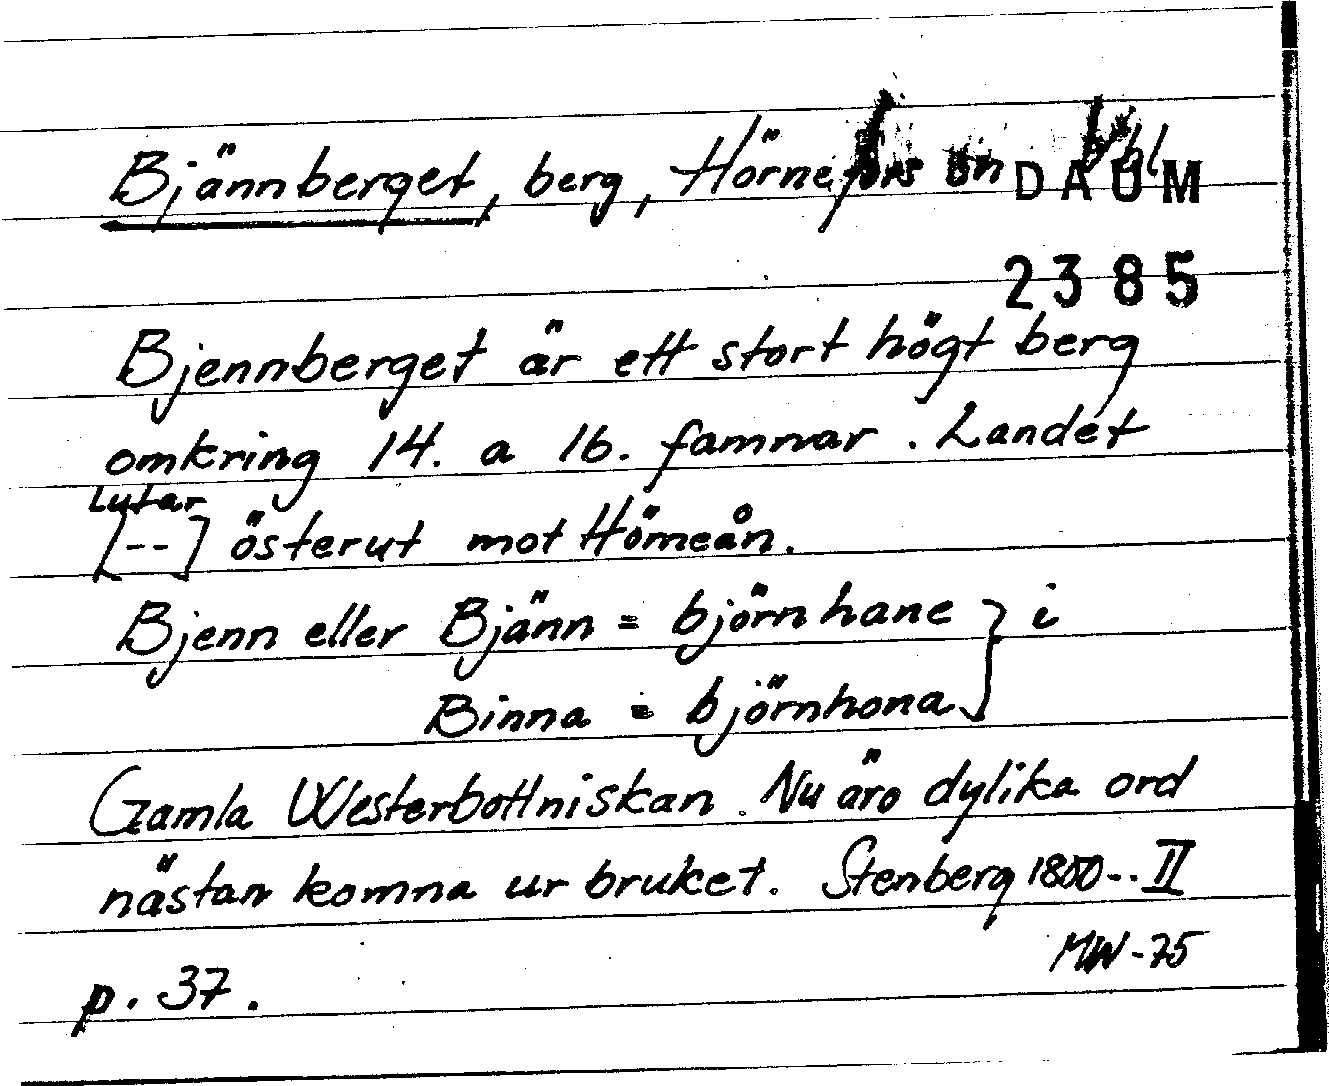 Bjännberget, berg, Hörnefors sn Vbl
DAUM
2385
Bjennberget är ett stort högt berg
omkring 14. a 16. famnar. Landet
lutar
[--] österut mot Hörneån.
Bjenn eller Bjänn = björnhane } i
Binna = björnhona
Gamla Westerbottniskan. Nu äro dylika ord
nästan komna ur bruket. Stenberg 1800-- II
MW-75
p. 37.